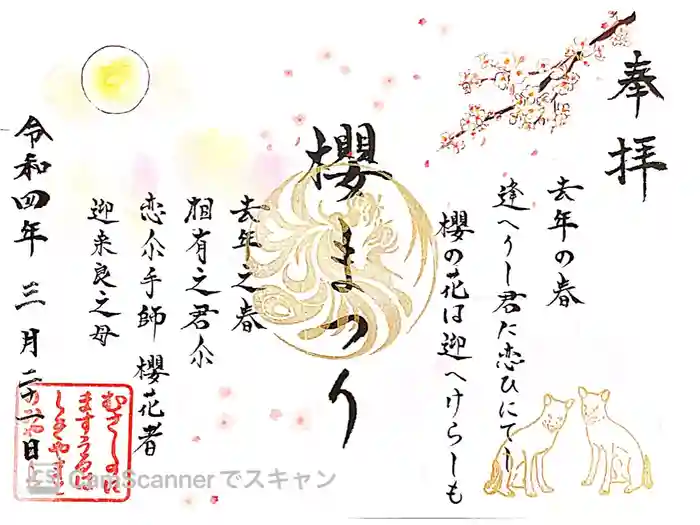 奉拝
去年の春
逢へりし君に恋ひにてし
櫻の花は迎へけらしも
櫻まつり
去年之春
相有之君尓
恋尓手師 櫻花者
迎来良之母
令和四年 三月二十一日
むさしのに
CS CamScanner でスキャン